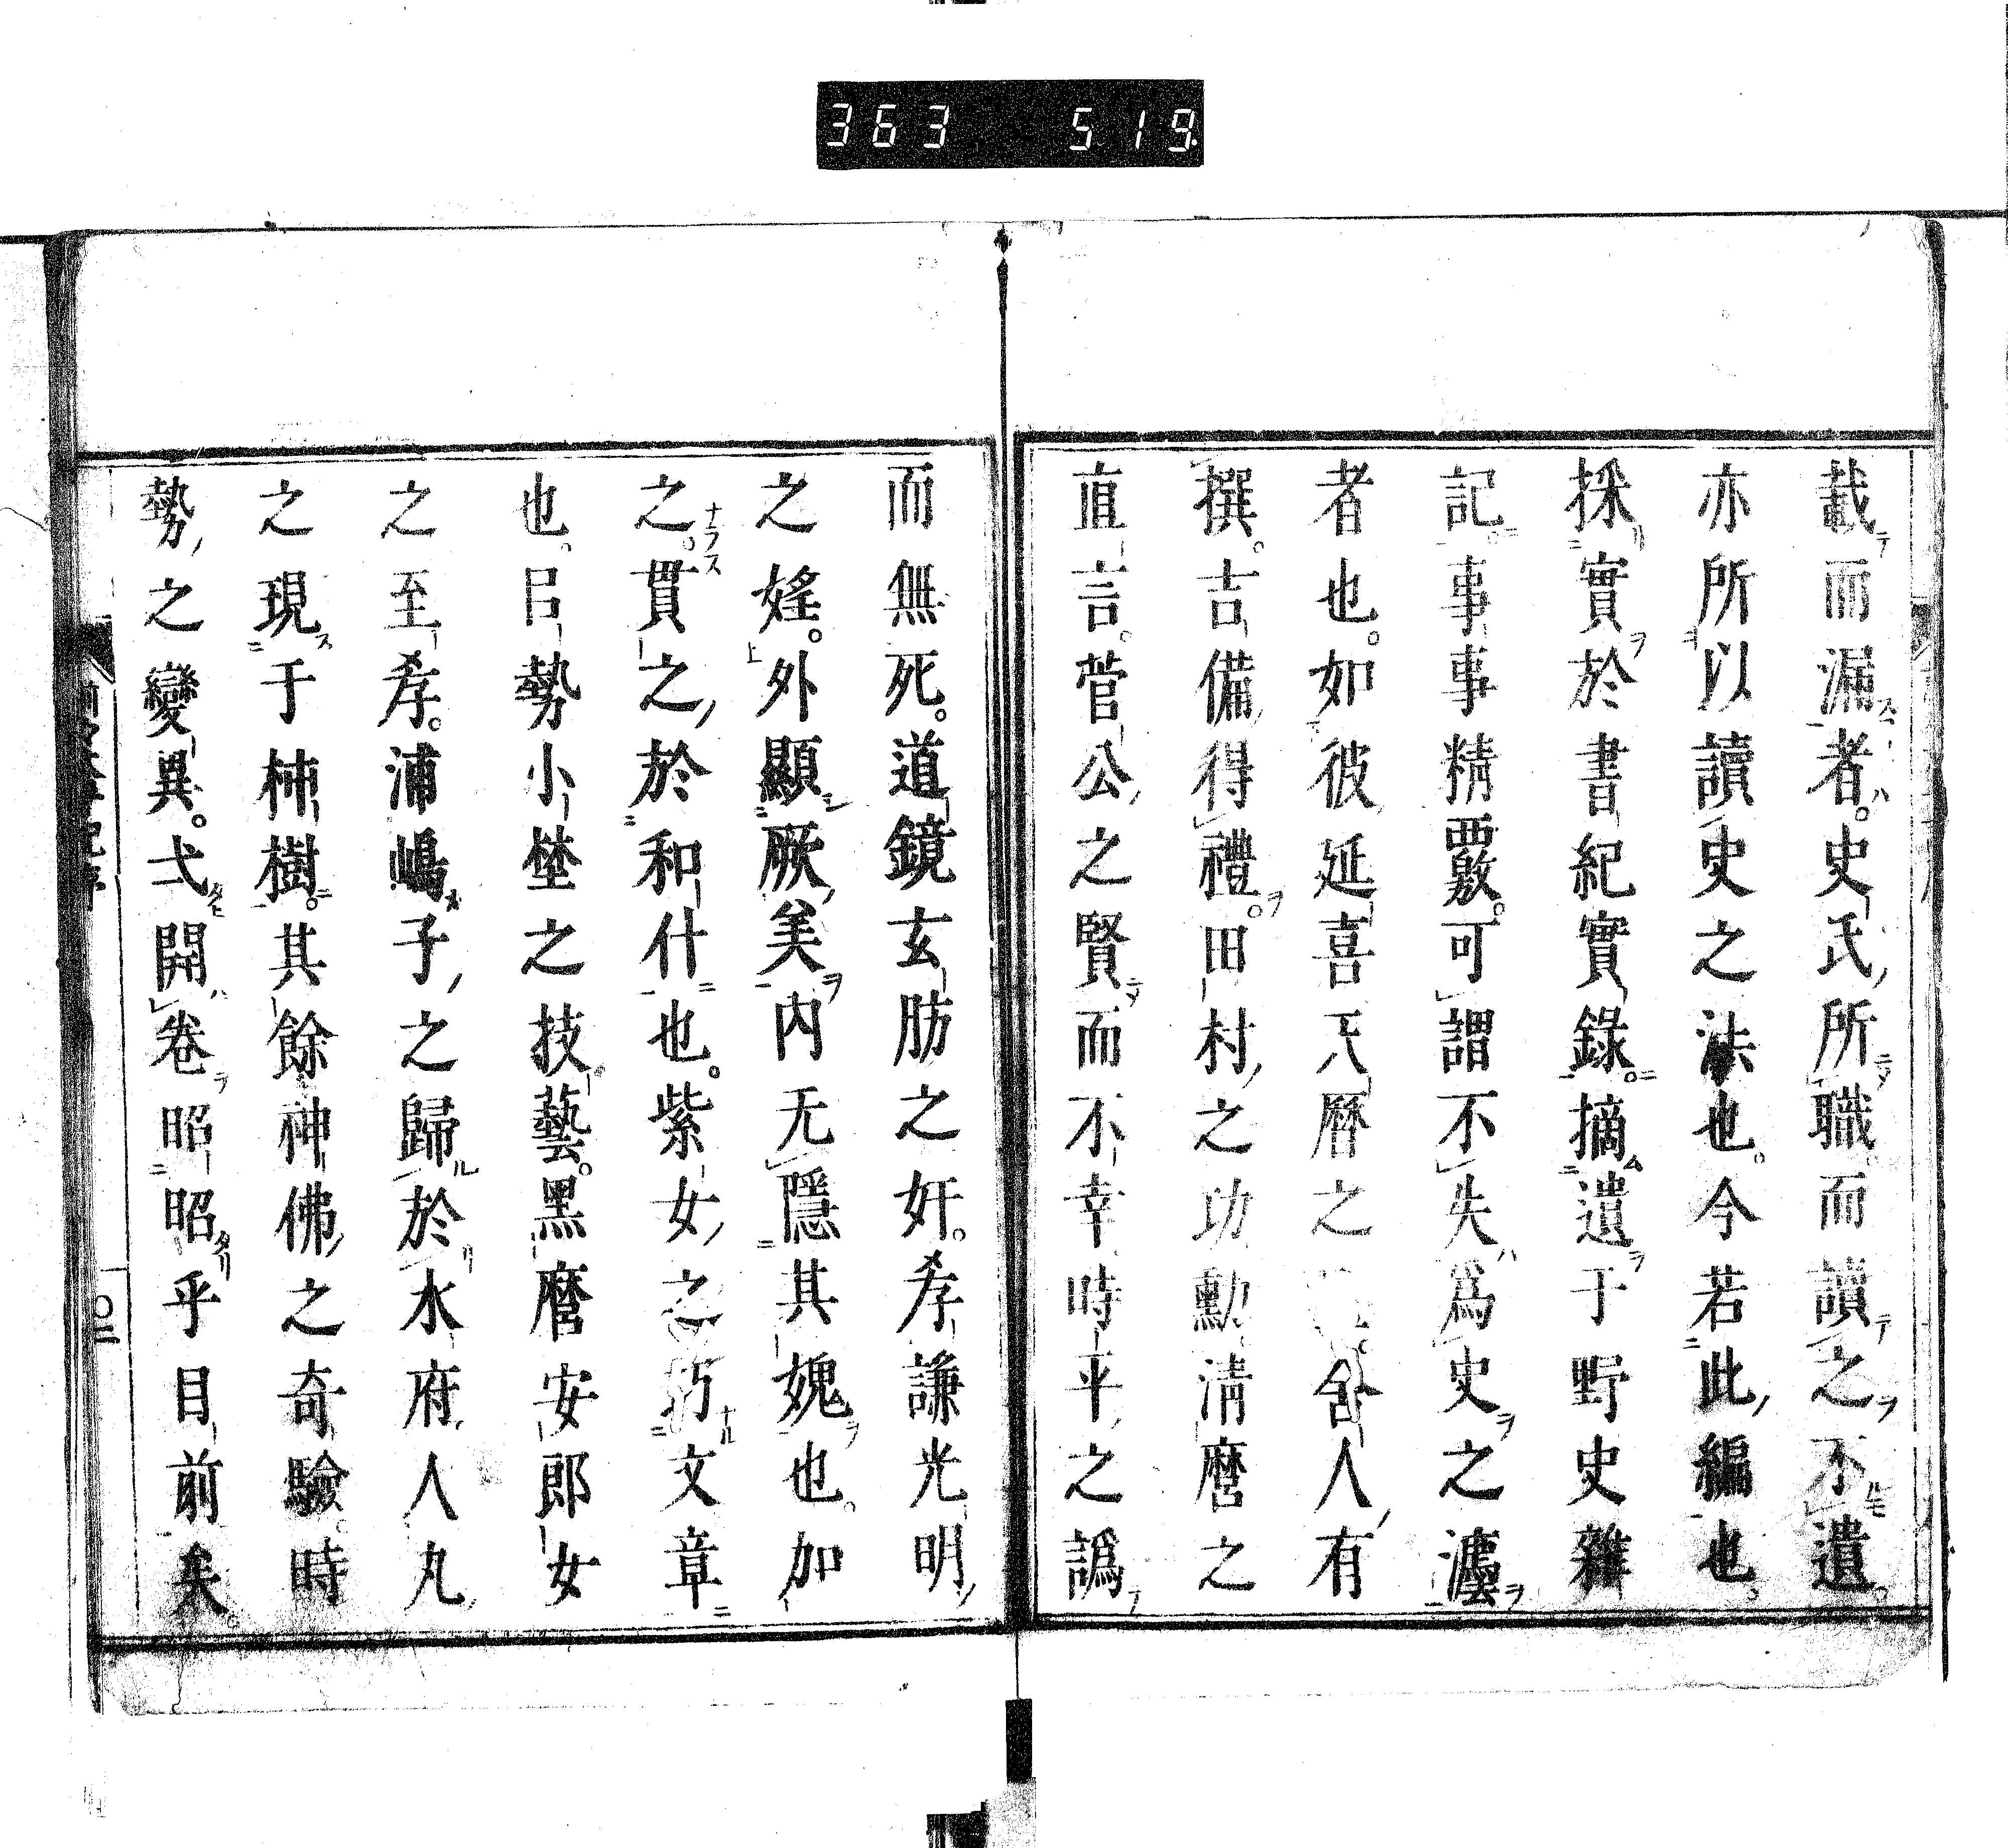 363 519
載而漏者。史氏所職。而讀之不遺。
亦所以讀史之法也。今若此編也。
採實於書紀實錄。摘遺于野史雜
記。事事精覈。可謂不失爲史之
者也。如彼延喜天曆之舍人有
撰。吉備得禮。田村之功勳。清麿之
直言。菅公之賢而不幸。時平之譌
而無死。道鏡玄肪之奸。孝謙光明
之婬。外顯厥美內无隱其媿也。加
之。貫之於和什也。紫女之巧文章
也。吕勢小坐之技藝。黑麿安郎女
之至孝。浦嶋子之歸於水府。人丸
之現于柿樹。其餘神佛之奇驗。時
勢之變異。弌開卷昭昭乎目前矣。